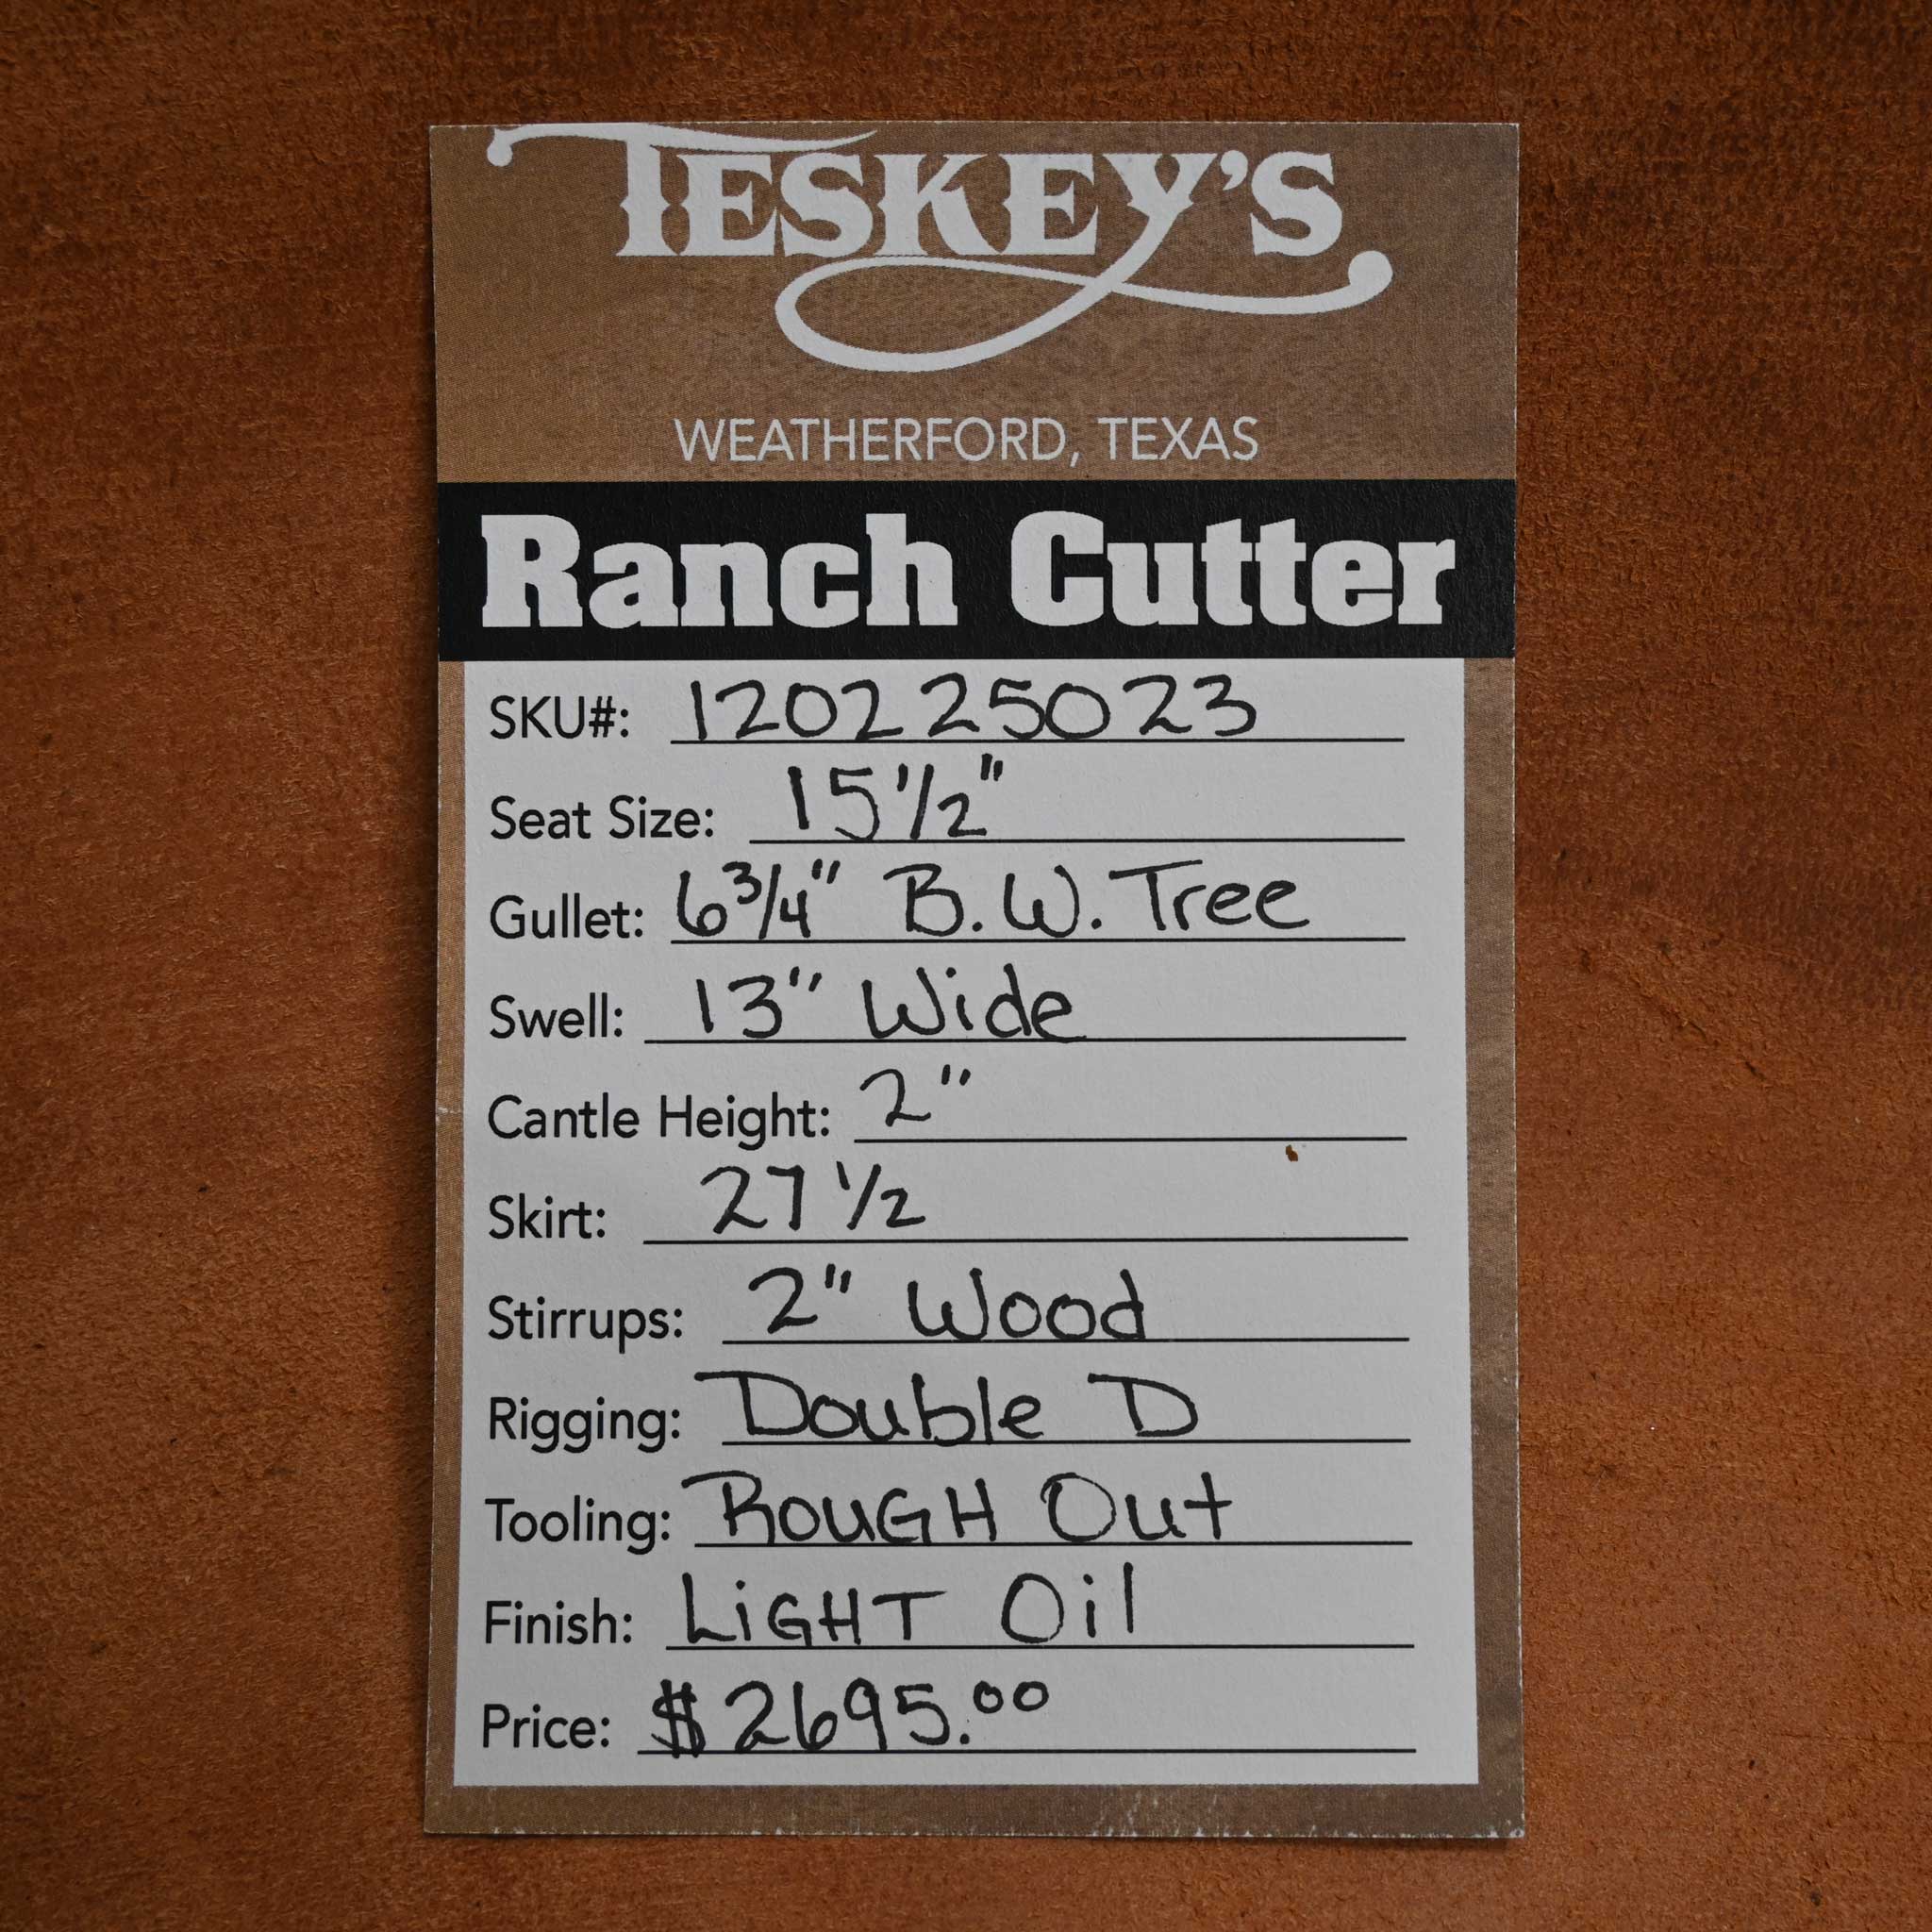 TESKEY'S
WEATHERFORD, TEXAS
Ranch Cutter
SKU#: 120225023
Seat Size: 15 1/2"
Gullet: 6 3/4" B.W. Tree
Swell: 13" Wide
Cantle Height: 2"
Skirt: 27 1/2
Stirrups: 2" Wood
Rigging: Double D
Tooling: ROUGH Out
Finish: LiGHT Oil
Price: $2695.00